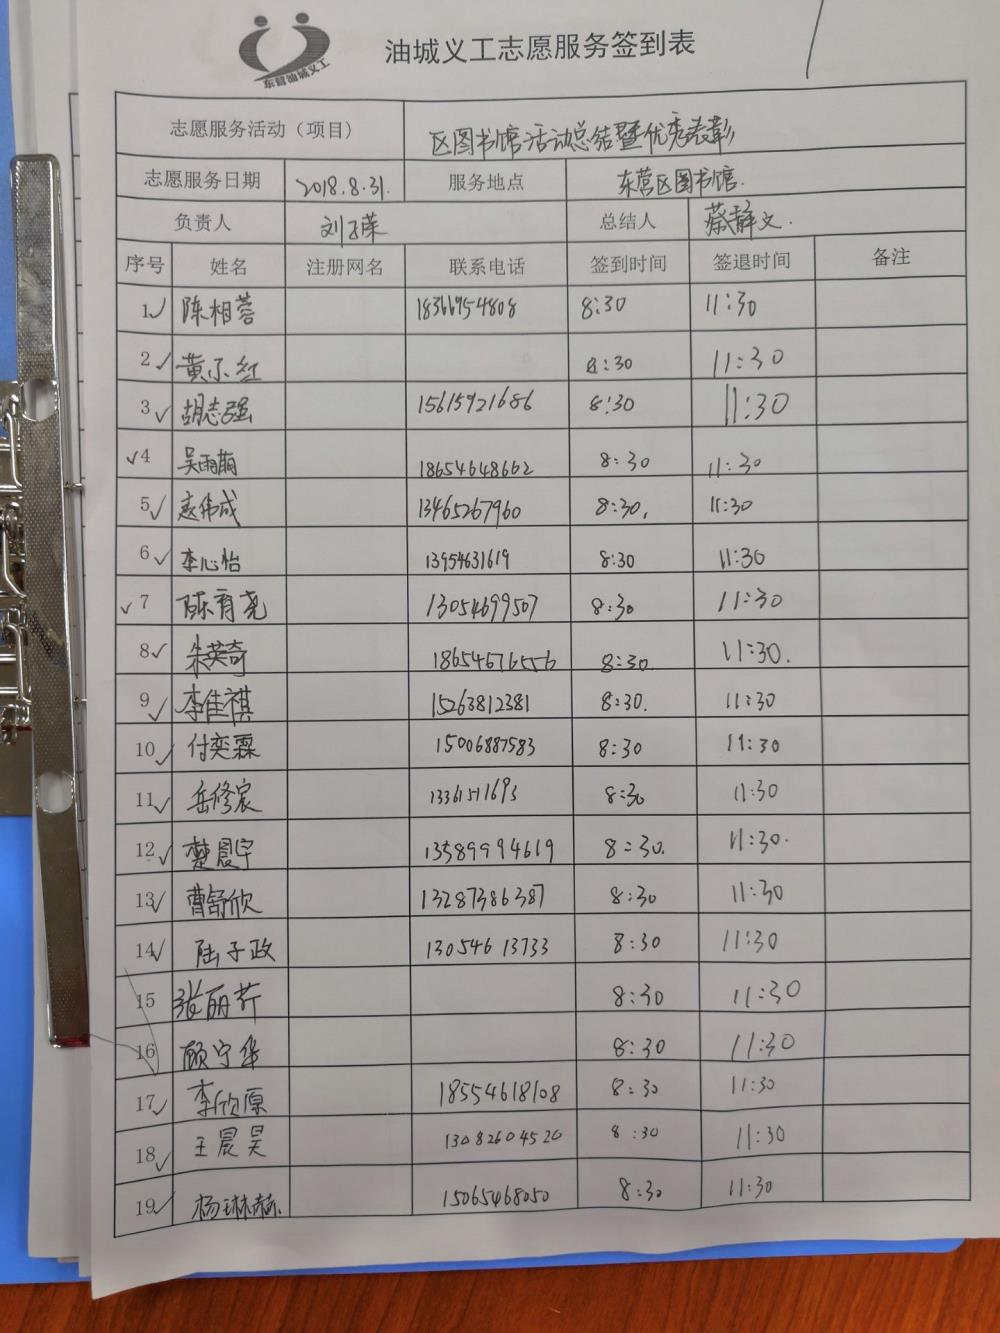 东营油城义工
油城义工志愿服务签到表
志愿服务活动（项目） 区图书馆活动总结暨优秀表彰
志愿服务日期 2018.8.31. 服务地点 东营区图书馆.
负责人 刘子荣 总结人 蔡静文.
序号 姓名 注册网名 联系电话 签到时间 签退时间 备注
1 陈相蓉 18366954808 8:30 11:30
2 黄小红 8:30 11:30
3 胡志强 15615921686 8:30 11:30
4 吴雨萌 18654648662 8:30 11:30
5 赵伟成 13465267960 8:30. 11:30
6 李心怡 13954631619 8:30 11:30
7 陈育尧 13054699507 8:30 11:30
8 朱英奇 18654676556 8:30. 11:30.
9 李佳祺 15263812381 8:30. 11:30
10 付奕霖 15006887583 8:30 11:30
11 岳修宸 13361511693 8:30 11:30
12 楚晨宇 13589994619 8:30. 11:30.
13 曹舒欣 13287386387 8:30 11:30
14 陆子政 13054613733 8:30 11:30
15 张丽芹 8:30 11:30
16 顾宁华 8:30 11:30
17 李欣原 18554618108 8:30 11:30
18 王晨昊 13082604520 8:30 11:30
19 杨琳赫 15065468050 8:30 11:30